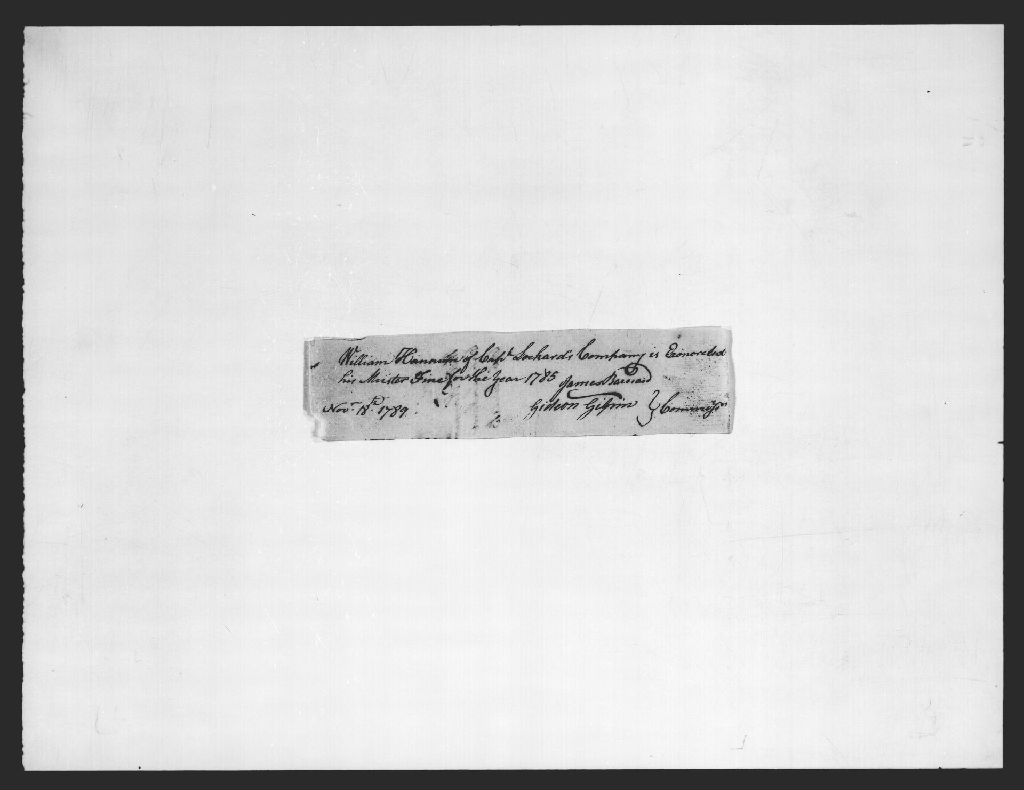 William Hannah of Capt. Lochard's Company is Exonorated
his Muster Fine for the Year 1785
James Barnard
Nov. 18th 1789. Gideon Gilpin } Commiss